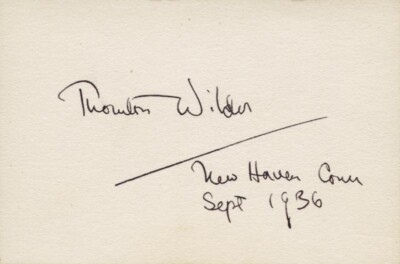 Thornton Wilder
New Haven Conn
Sept 1936